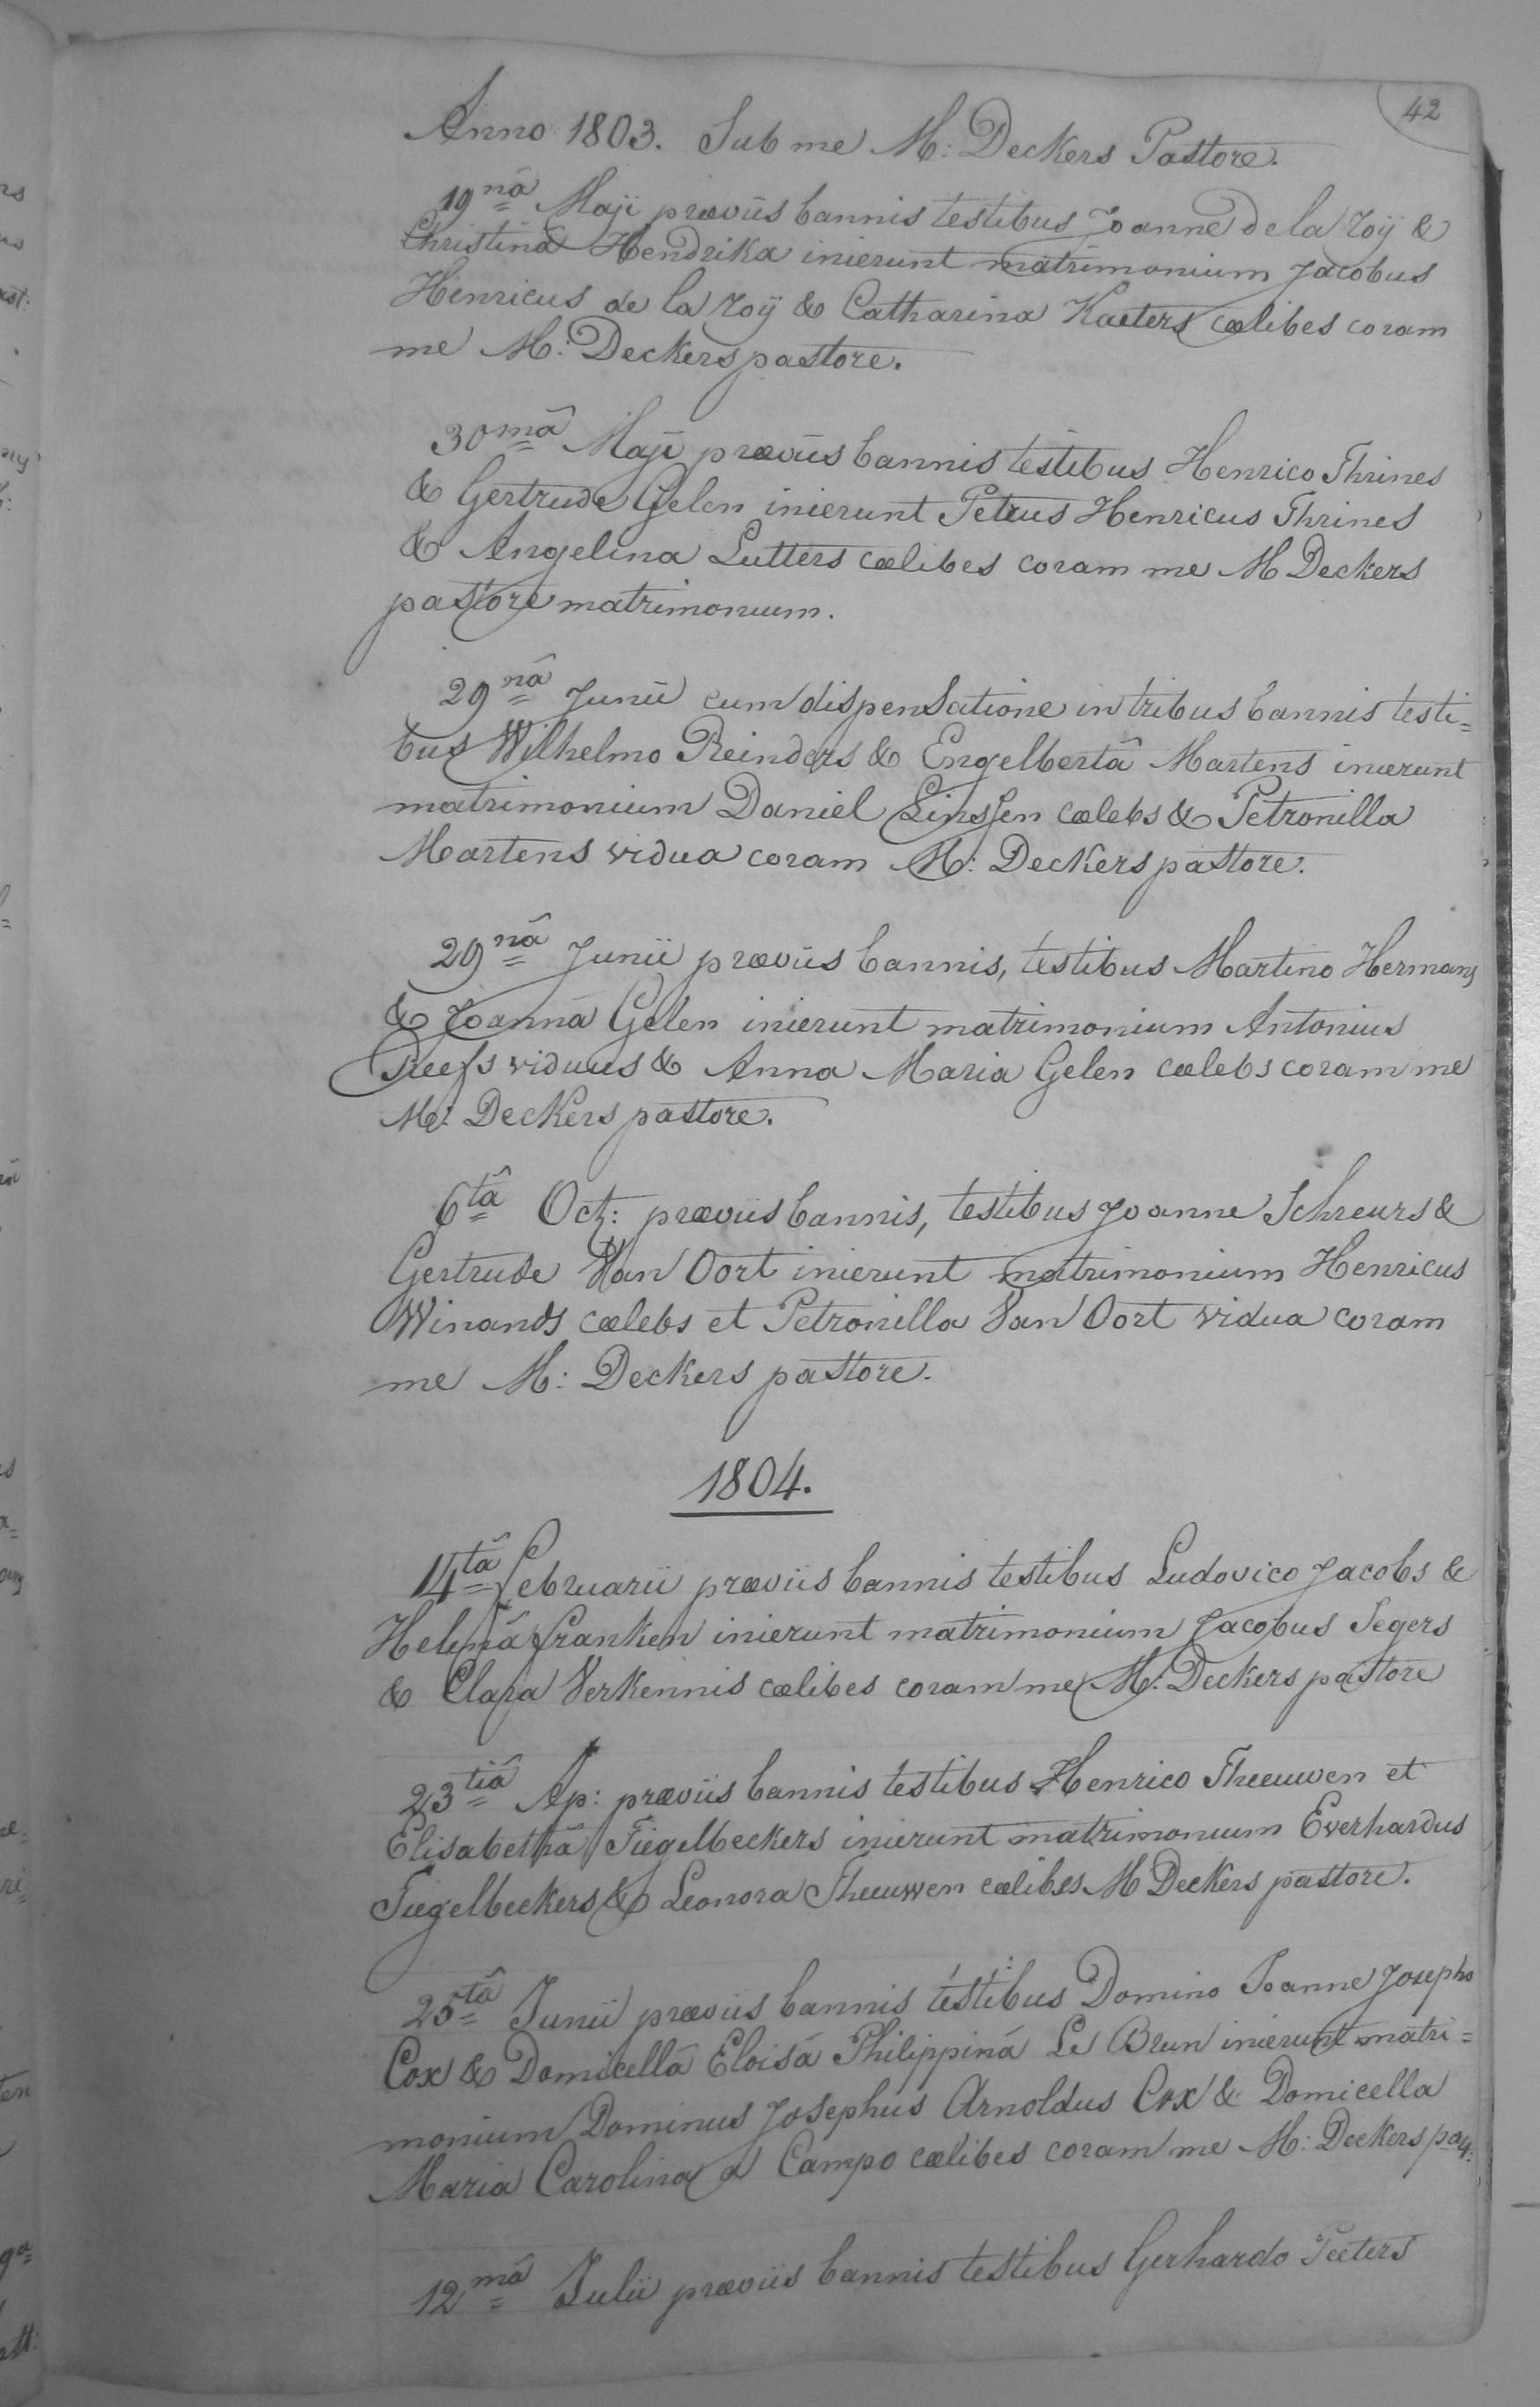 42
Anno 1803. Sub me M: Deckers Pastore.
19nâ Maji præviis bannis testibus Joanne de la Roÿ &
Christinâ Hendrika inierunt matrimonium Jacobus
Henricus de la Roÿ & Catharina Kaeters cœlibes coram
me M: Deckers pastore.
30mâ Maji præviis bannis testibus Henrico Thrines
& Gertrude Gelen inierunt Petrus Henricus Thrines
& Angelina Lutters cœlibes coram me M Deckers
pastore matrimonium.
29nâ Junii cum dispensatione in tribus bannis testi=
bus Wilhelmo Reinders & Engelbertâ Martens inierunt
matrimonium Daniel Linssen cœlebs & Petronilla
Martens vidua coram M: Deckers pastore.
29nâ Junii præviis bannis, testibus Martino Hermans
& Joannâ Gelen inierunt matrimonium Antonius
viduus & Anna Maria Gelen cœlebs coram me
M: Deckers pastore.
6tâ Oct: præviis bannis, testibus Joanne Schreurs &
Gertrude Van Oort inierunt matrimonium Henricus
Winands cœlebs et Petronilla Van Oort vidua coram
me M: Deckers pastore.
1804.
14tâ februarii præviis bannis testibus Ludovico Jacobs &
Helenâ franken inierunt matrimonium Jacobus Segers
& Clara Verkennis cœlibes coram me M: Deckers pastore
23tiâ Ap: præviis bannis testibus Henrico Theeuwen et
Elisabethâ Tiegelbeckers inierunt matrimonium Everhardus
Tiegelbeckers & Leonora Theeuwen cœlibes M Deckers pastore.
25tâ Junii præviis bannis testibus Domino Joanne Josepho
Cox & Domicellâ Eloisâ Philippinâ Le Brun inierunt matri=
monium Dominus Josephus Arnoldus Cox & Domicella
Maria Carolina a Campo cœlibes coram me M: Deckers
12mâ Julii præviis bannis testibus Gerhardo Peeters